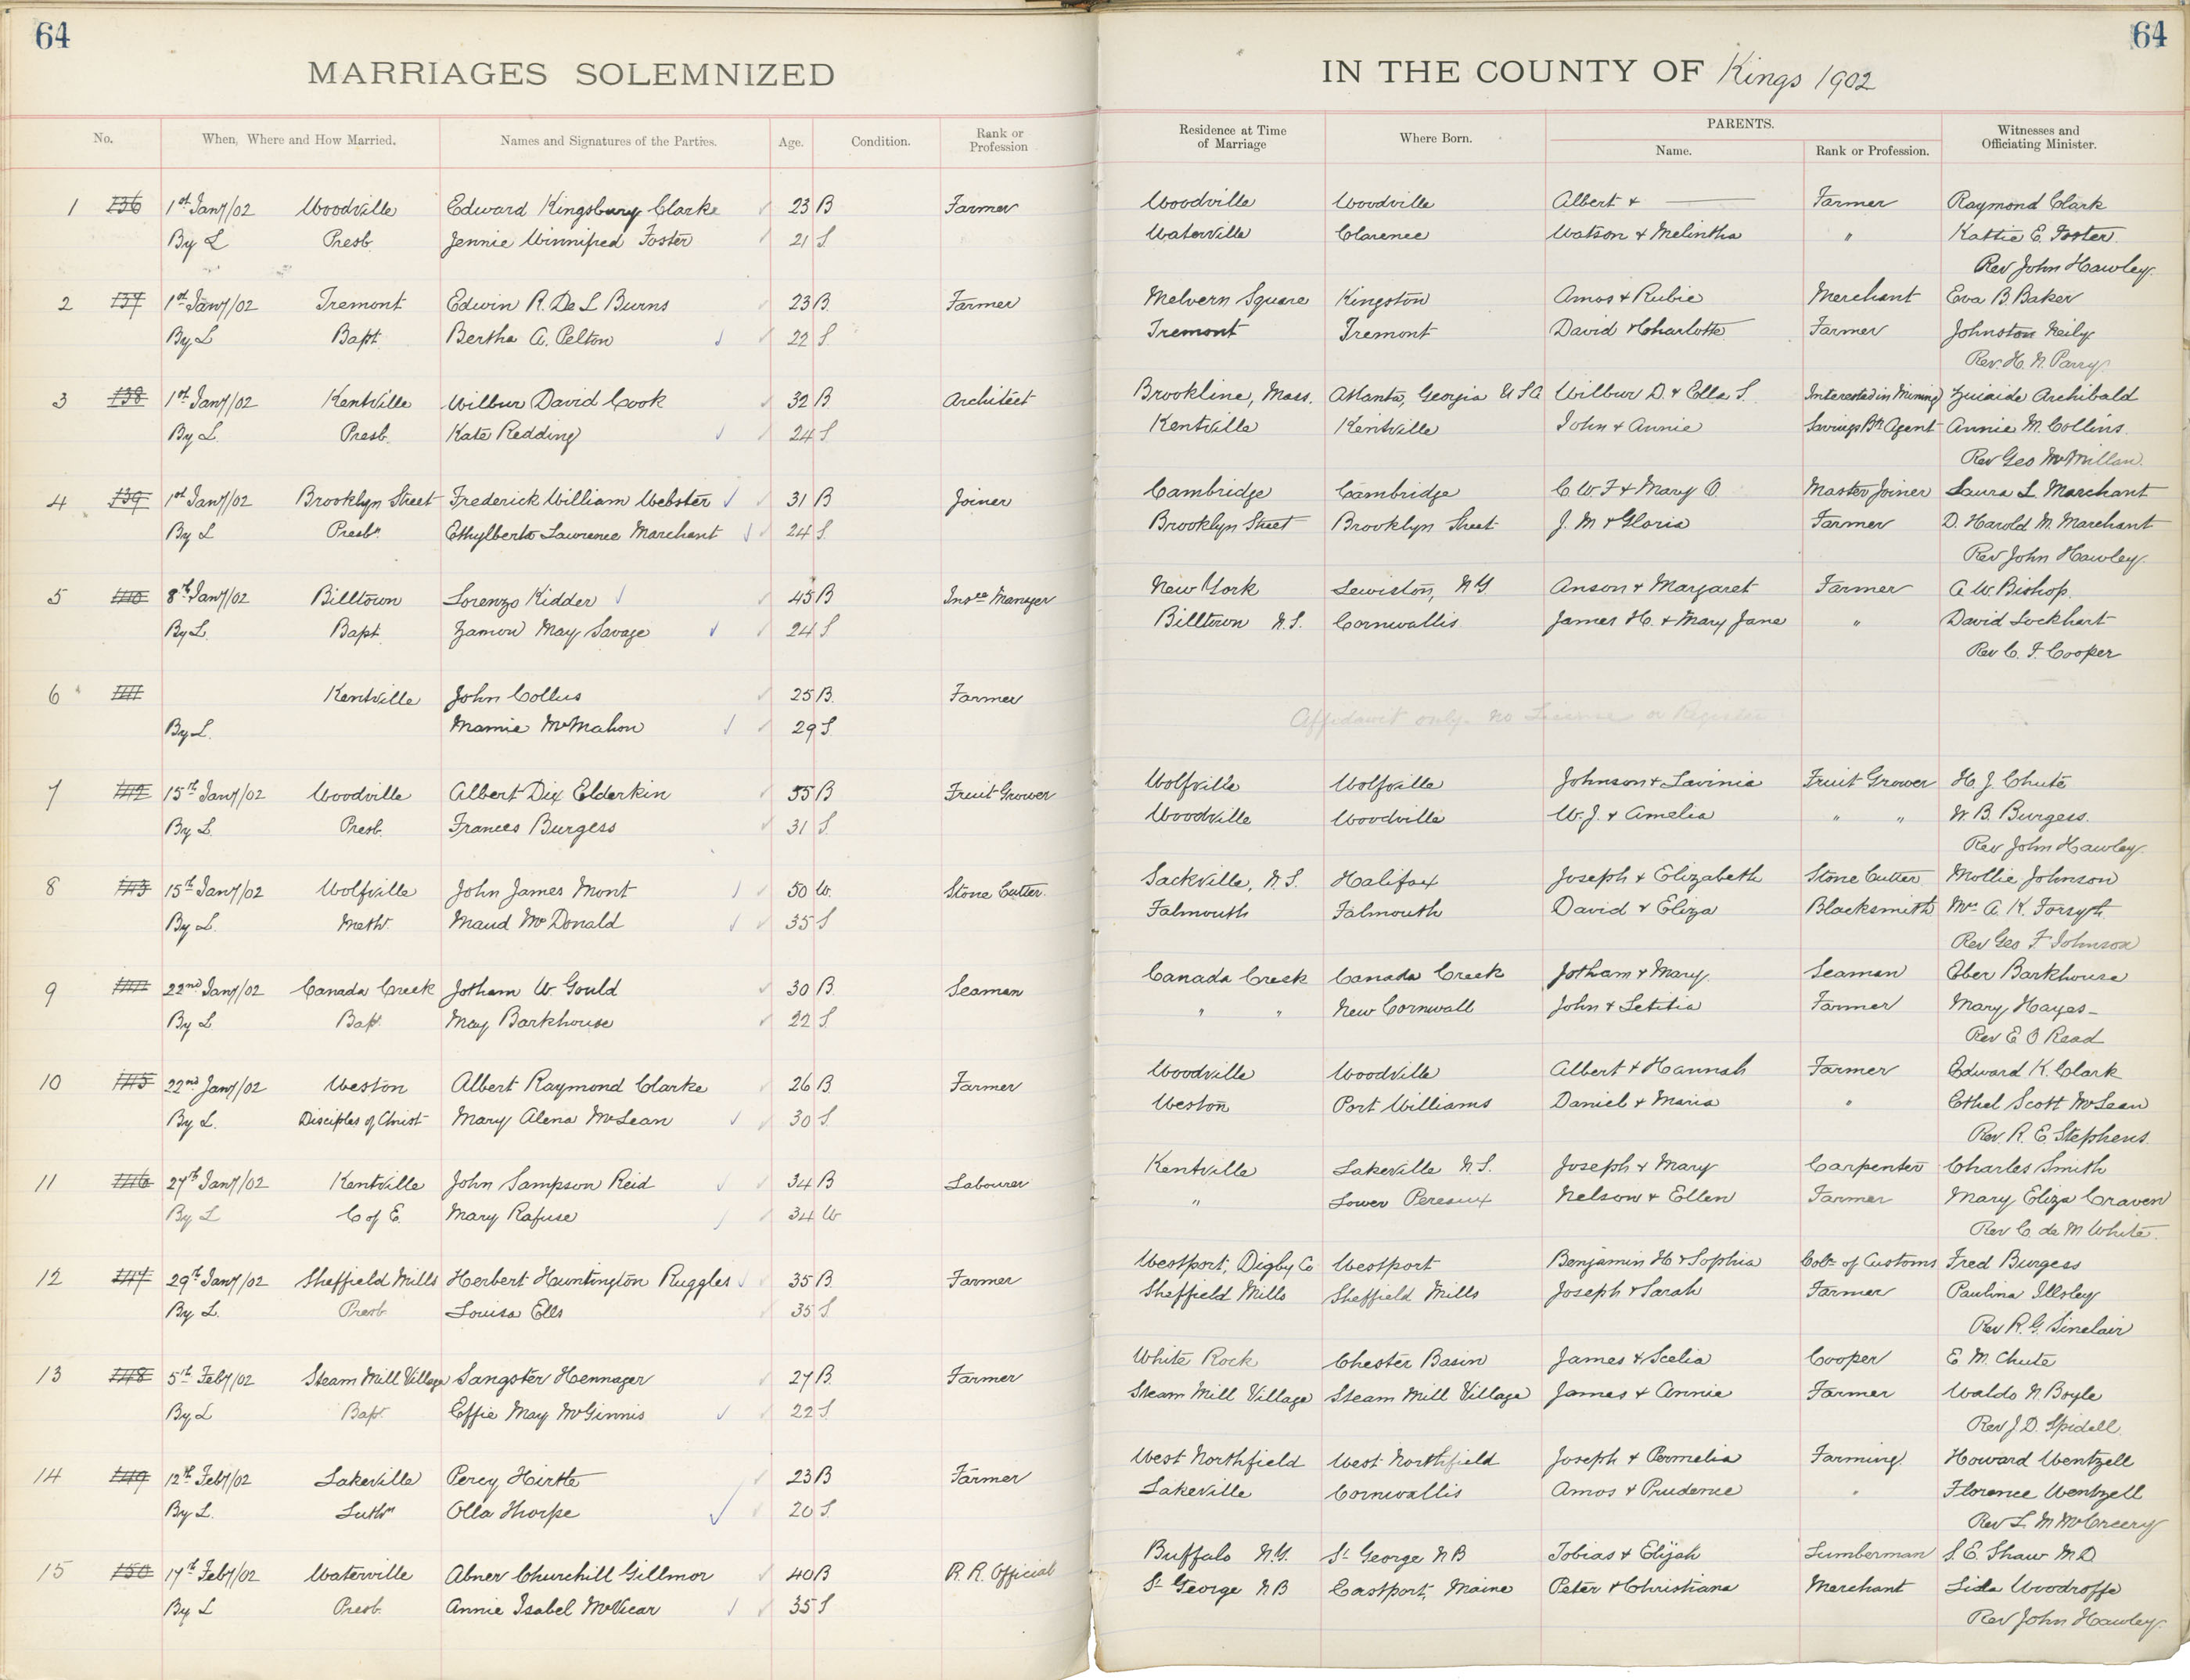 64
64
MARRIAGES SOLEMNIZED IN THE COUNTY OF Kings 1902
No. When, Where and How Married. Names and Signatures of the Parties. Age. Condition. Rank or Profession Residence at Time of Marriage Where Born. PARENTS. Name. Rank or Profession. Witnesses and Officiating Minister.
1 136 1st Jany/02 Woodville Edward Kingsbury Clarke 23 B Farmer Woodville Woodville Albert & Farmer Raymond Clark
By L Presb. Jennie Winnifred Foster 21 S Waterville Clarence Watson & Melintha " Kattie E. Foster
Rev John Hawley
2 137 1st Jany/02 Tremont Edwin R. De L Burns 23 B. Farmer Melvern Square Kingston Amos & Rubie Merchant Eva B. Baker
By L Bapt. Bertha A. Pelton 22 S. Tremont Tremont David & Charlotte Farmer Johnston Neily
Rev. H. N. Parry
3 138 1st Jany/02 Kentville Wilbur David Cook 32 B. Architect Brookline, Mass. Atlanta, Georgia U S A Wilbur D. & Ella S. Interested in Mining Archibald
By L. Presb. Kate Redding 24 S. Kentville Kentville John & Annie Savings Bk Agent Annie M. Collins.
Rev Geo McMillan.
4 139 1st Jany/02 Brooklyn Street Frederick William Webster 31 B Joiner Cambridge Cambridge C. W. F & Mary O. Master Joiner Laura L Marchant
By L Presbn Ethylberta Lawrence Marchant 24 S. Brooklyn Street Brooklyn Street J. M & Gloria Farmer D. Harold M. Marchant
Rev John Hawley
5 140 8th Jany/02 Billtown Lorenzo Kidder 45 B Insce Manager New York Lewiston, N Y Anson & Margaret Farmer A. W. Bishop.
By L. Bapt. Zamon May Savage 24 S Billtown N.S. Cornwallis James H. & Mary Jane " David Lockhart
Rev C. F. Cooper
6 141 Kentville John Collus 25 B. Farmer
By L. Mamie McMahon 29 S. Affidavit only. No License or Register
7 142 15th Jany/02 Woodville Albert Dix Elderkin 55 B Fruit Grower Wolfville Wolfville Johnson & Lavinia Fruit Grower H. J. Chute
By L. Presb. Frances Burgess 31 S. Woodville Woodville W. J. & Amelia " " W. B. Burgess.
Rev John Hawley
8 143 15th Jany/02 Wolfville John James Mont 50 W. Stone Cutter. Sackville, N.S. Halifax Joseph & Elizabeth Stone Cutter Mollie Johnson
By L. Meth. Maud McDonald 35 S Falmouth Falmouth David & Eliza Blacksmith Mrs A. K. Forsyth
Rev Geo F Johnson
9 144 22nd Jany/02 Canada Creek Jotham W. Gould 30 B. Seaman Canada Creek Canada Creek Jotham & Mary Seaman Eber Barkhouse
By L Bapt. May Barkhouse 22 S. " " New Cornwall John & Letitia Farmer Mary Hayes
Rev E O Read
10 145 22nd Jany/02 Weston Albert Raymond Clarke 26 B. Farmer Woodville Woodville Albert & Hannah Farmer Edward K. Clark
By L. Disciples of Christ Mary Alena McLean 30 S. Weston Port Williams Daniel & Maria " Ethel Scott McLean
Rev. R. E. Stephens.
11 146 27th Jany/02 Kentville John Sampson Reid 34 B Labourer Kentville Lakeville N.S. Joseph & Mary Carpenter Charles Smith
By L C of E. Mary Rafuse 34 W " Lower Pereaux Nelson & Ellen Farmer Mary Eliza Craven
Rev C. de M White.
12 147 29th Jany/02 Sheffield Mills Herbert Huntington Ruggles 35 B. Farmer Westport, Digby Co Westport Benjamin H & Sophia Coltr of Customs Fred Burgess
By L. Presb Louisa Ells 35 S. Sheffield Mills Sheffield Mills Joseph & Sarah Farmer Paulina Illsley
Rev R. G. Sinclair
13 148 5th Feby/02 Steam Mill Village Sangster Hennager 27 B. Farmer White Rock Chester Basin James & Scelia Cooper E. M. Chute
By L Bapt. Effie May McGinnis 22 S. Steam Mill Village Steam Mill Village James & Annie Farmer Waldo N. Boyle
Rev J. D. Spidell.
14 149 12th Feby/02 Lakeville Percy Hirtle 23 B Farmer West Northfield West Northfield Joseph & Permelia Farming Howard Wentzell
By L. Luthn Olla Thorpe 20 S. Lakeville Cornwallis Amos & Prudence " Florence Wentzell
Rev L. M McCreery
15 150 17th Feby/02 Waterville Abner Churchill Gillmor 40 B R. R. Official Buffalo N.Y. St George N B Tobias & Elijah Lumberman S. E. Shaw M.D.
By L Presb. Annie Isabel McVicar 35 S St George N B Eastport, Maine Peter & Christiana Merchant Lida Woodroffe
Rev John Hawley